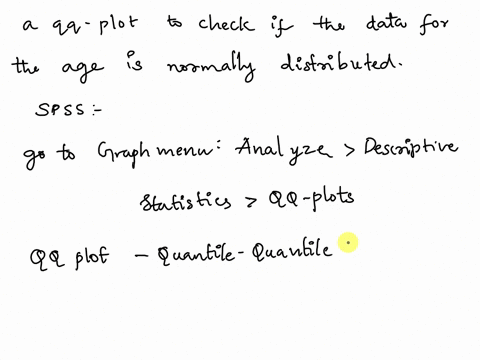 a qq-plot to check if the data for
the age is normally distributed.
SPSS :-
go to Graph menu: Analyze > Descriptive
Statistics > QQ-plots
QQ plot - Quantile-Quantile